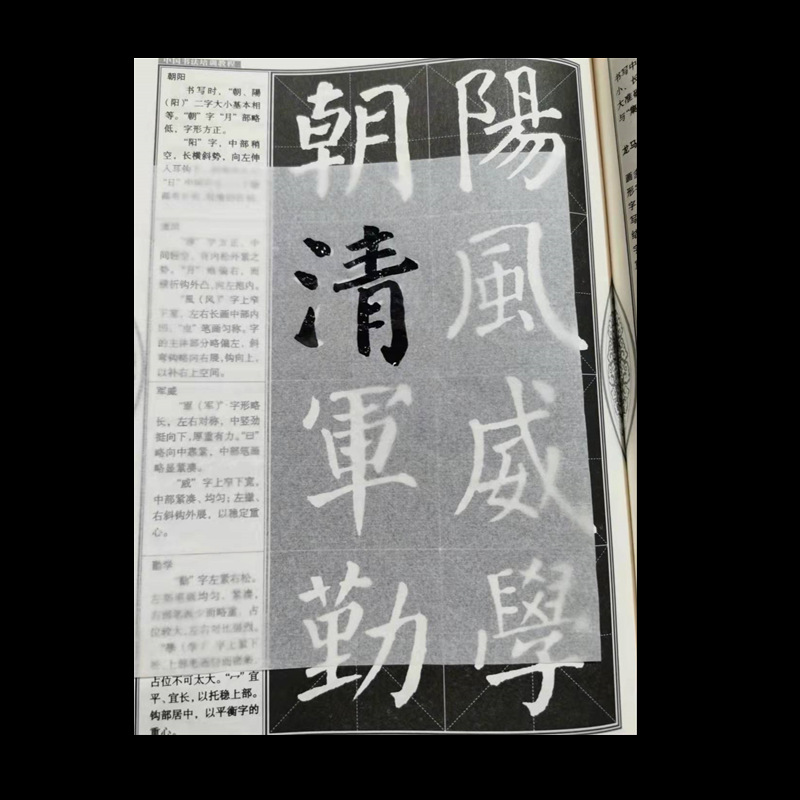 中国书法培训教程
朝阳
书写时，“朝、陽
（阳）”二字大小基本相
等。“朝”字“月”部略
低，字形方正。
“阳”字，中部稍
空，长横斜势，向左伸
清风
“清”字方正，中
“風（风）”字上窄
下宽，左右长画中部内
笔画匀称，字
的主体部分略偏左，斜
弯钩略向右腰，钩向上，
以补右上空间。
军威
“軍（军）”字形略
长，左右对称，中竖劲
挺向下，厚重有力。“曰”
略向中靠紧，中部笔画
略显紧凑。
“威”字上窄下宽，
中部紧凑、均匀；左撇、
右斜钩外展，以稳定重
心。
勤学
“勤”字左紧右松。
占
位较大，左右对比强烈。
占位不可太大。“冖”宜
平、宜长，以托稳上部。
钩部居中，以平衡字的
重心。
朝 陽
清 風
軍 威
勤 學
书写中
小、长
龙马